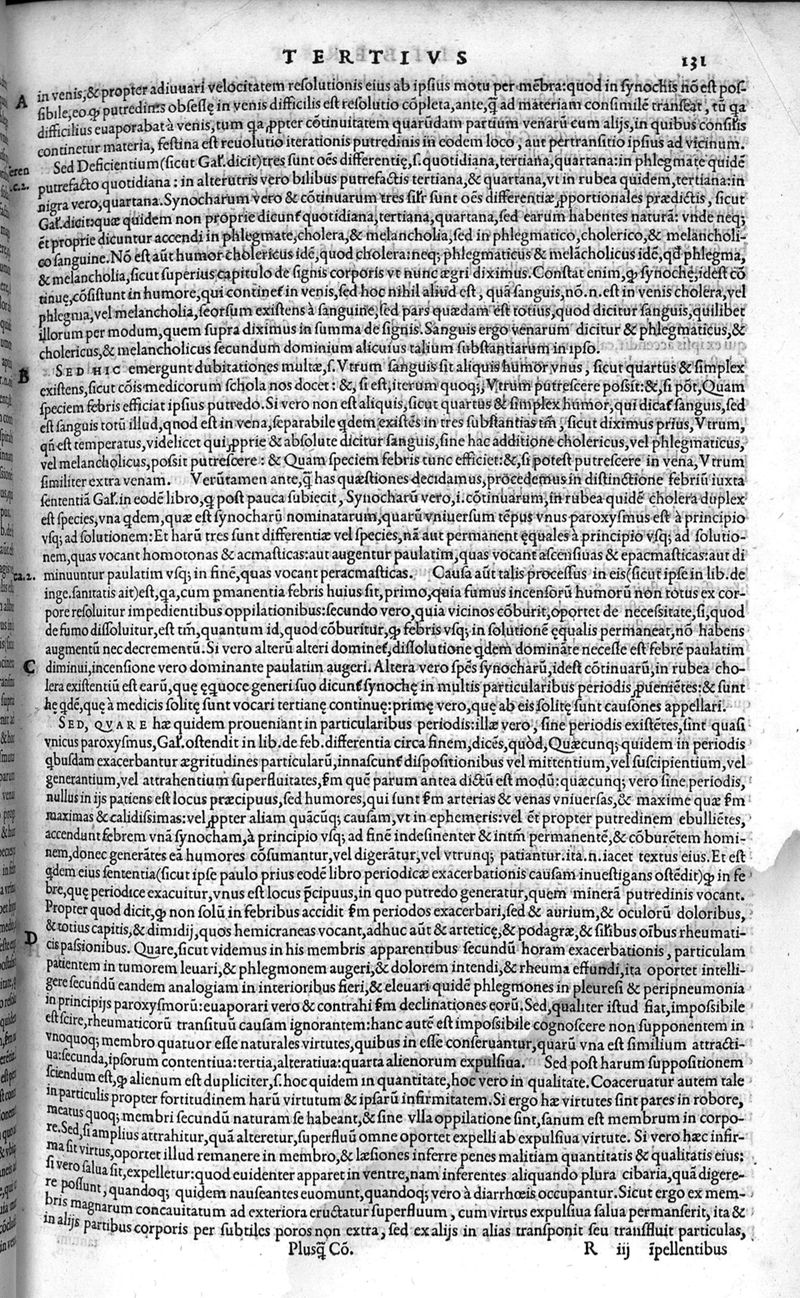 TERTIVS 131
in venis, & propter adiuuari velocitatem resolutionis eius ab ipsius motu per mẽbra: quod in synochis nõ est pos-
A
sibile, eo ꝙ putredinis obsessę in venis difficilis est resolutio cõpleta, ante, ꝗ̃ ad materiam consimilẽ transeat, tũ ꝗa
difficilius euaporabat à venis, tum ꝗa ꝓpter cõtinuitatem quarũdam partium venarũ cum alijs, in quibus consilis
continetur materia, festina est reuolutio iterationis putredinis in eodem loco, aut pertransitio ipsius ad vicinum.
Sed Deficientium (sicut Gal. dicit) tres sunt oẽs differentię, s. quotidiana, tertiana, quartana: in phlegmate quidẽ
putrefacto quotidiana: in alterutris vero bilibus putrefactis tertiana, & quartana, vt in rubea quidem, tertiana: in
nigra vero, quartana. Synocharum vero & cõtinuarum tres sil̃r sunt oẽs differentiæ, ꝓportionales prædictis, sicut
Gal. dicit: quæ quidem non proprie dicunt̃ quotidiana, tertiana, quartana, sed earum habentes naturã: vnde neq;
ẽt proprie dicuntur accendi in phlegmate, cholera, & melancholia, sed in phlegmatico, cholerico, & melancholi-
co sanguine. Nõ est aũt humor cholericus idẽ, quod cholera: neq; phlegmaticus & melãcholicus idẽ, qđ phlegma,
& melancholia, sicut superius capitulo de signis corporis vt nunc ægri diximus. Constat enim, ꝙ synochę, idest cõ
tinuę, cõsistunt in humore, qui continet̃ in venis, sed hoc nihil aliud est, quã sanguis, nõ. n. est in venis cholera, vel
phlegma, vel melancholia, seorsum existens à sanguine, sed pars quædam est totius, quod dicitur sanguis, quilibet
illorum per modum, quem supra diximus in summa de signis. Sanguis ergo venarum dicitur & phlegmaticus, &
cholericus, & melancholicus secundum dominium alicuius talium substantiarum in ipso.
B
SED HIC emergunt dubitationes multæ, s. Vtrum sanguis sit aliquis humor vnus, sicut quartus & simplex
existens, sicut cõis medicorum schola nos docet: &, si est, iterum quoq;, Vtrum putrescere possit: &, si põt, Quam
speciem febris efficiat ipsius putredo. Si vero non est aliquis, sicut quartus & simplex humor, qui dicat̃ sanguis, sed
est sanguis totũ illud, quod est in vena, separabile ꝗdem existẽs in tres substantias tm̃, sicut diximus prius, Vtrum,
qñ est temperatus, videlicet qui ꝓprie & absolute dicitur sanguis, sine hac additione cholericus, vel phlegmaticus,
vel melancholicus, possit putrescere: & Quam speciem febris tunc efficiet: &, si potest putrescere in vena, Vtrum
similiter extra venam. Verũtamen ante, ꝗ̃ has quæstiones decidamus, procedemus in distinctione febriũ iuxta
sententiã Gal. in eodẽ libro, ꝗ post pauca subiecit, Synocharũ vero, i. cõtinuarum, in rubea quidẽ cholera duplex
est species, vna ꝗdem, quæ est synocharũ nominatarum, quarũ vniuersum tẽpus vnus paroxysmus est à principio
vsq; ad solutionem: Et harũ tres sunt differentiæ vel species, nã aut permanent ęquales à principio vsq; ad solutio-
nem, quas vocant homotonas & acmasticas: aut augentur paulatim, quas vocant ascensiuas & epacmasticas: aut di
minuuntur paulatim vsq; in finẽ, quas vocant peracmasticas. Causa aũt talis processus in eis (sicut ipse in lib. de
inge. sanitatis ait) est, ꝗa, cum ꝑmanentia febris huius sit, primo, quia fumus incensorũ humorũ non totus ex cor-
pore resoluitur impedientibus oppilationibus: secundo vero, quia vicinos cõburit, oportet de necessitate, si, quod
de fumo dissoluitur, est tm̃, quantum id, quod cõburitur, ꝙ febris vsq; in solutionẽ ęqualis permaneat, nõ habens
augmentũ nec decrementũ. Si vero alterũ alteri dominet̃, dissolutione ꝗdem dominãte necesse est febrẽ paulatim
C
diminui, incensione vero dominante paulatim augeri. Altera vero spẽs synocharũ, idest cõtinuarũ, in rubea cho-
lera existentiũ est earũ, quę ęquoce generi suo dicunt̃ synochę in multis particularibus periodis ꝓueniẽtes: & sunt
hę ꝗdẽ, quę à medicis solitę sunt vocari tertianę continuę: primę vero, que ab eis solitę sunt causones appellari.
SED, QVARE hæ quidem proueniant in particularibus periodis: illæ vero, sine periodis existẽtes, sint quasi
vnicus paroxysmus, Gal. ostendit in lib. de feb. differentia circa finem, dicẽs, quòd, Quæcunq; quidem in periodis
ꝗbusdam exacerbantur ægritudines particularũ, innascunt̃ dispositionibus vel mittentium, vel suscipientium, vel
generantium, vel attrahentium superfluitates, s̃m quẽ parum antea dictũ est modũ: quæcunq; vero sine periodis,
nullus in ijs patiens est locus præcipuus, sed humores, qui sunt s̃m arterias & venas vniuersas, & maxime quæ s̃m
maximas & calidissimas: vel ꝓpter aliam quãcũq; causam, vt in ephemeris: vel ẽt propter putredinem ebulliẽtes,
accendunt febrem vnã synocham, à principio vsq; ad finẽ indesinenter & intm̃ permanentẽ, & cõburẽtem homi-
nem, donec generãtes eã humores cõsumantur, vel digerãtur, vel vtrunq; patiantur. ita. n. iacet textus eius. Et est
ꝗdem eius sententia (sicut ipse paulo prius eodẽ libro periodicæ exacerbationis causam inuestigans ostẽdit) ꝙ in fe
bre, quę periodice exacuitur, vnus est locus p̃cipuus, in quo putredo generatur, quem minerã putredinis vocant.
Propter quod dicit, ꝙ non solũ in febribus accidit s̃m periodos exacerbari, sed & aurium, & oculorũ doloribus,
D
& totius capitis, & dimidij, quos hemicraneas vocant, adhuc aũt & arteticę, & podagræ, & sil̃ibus oĩbus rheumati-
cis passionibus. Quare, sicut videmus in his membris apparentibus secundũ horam exacerbationis, particulam
patientem in tumorem leuari, & phlegmonem augeri, & dolorem intendi, & rheuma effundi, ita oportet intelli-
gere secundũ eandem analogiam in interioribus fieri, & eleuari quidẽ phlegmones in pleuresi & peripneumonia
in principijs paroxysmorũ: euaporari vero & contrahi s̃m declinationes eorũ. Sed, qualiter istud fiat, impossibile
est scire, rheumaticorũ transituũ causam ignorantem: hanc autẽ est impossibile cognoscere non supponentem in
vnoquoq; membro quatuor esse naturales virtutes, quibus in esse conseruantur, quarũ vna est similium attracti-
ua: secunda, ipsorum contentiua: tertia, alteratiua: quarta alienorum expulsiua. Sed post harum suppositionem
sciendum est, ꝙ alienum est dupliciter, s. hoc quidem in quantitate, hoc vero in qualitate. Coaceruatur autem tale
in particulis propter fortitudinem harũ virtutum & ipsarũ infirmitatem. Si ergo hæ virtutes sint pares in robore,
meatus quoq; membri secundũ naturam se habeant, & sine vlla oppilatione sint, sanum est membrum in corpo-
re. Sed, si amplius attrahitur, quã alteretur, superfluũ omne oportet expelli ab expulsiua virtute. Si vero hæc infir-
ma sit virtus, oportet illud remanere in membro, & læsiones inferre penes malitiam quantitatis & qualitatis eius:
si vero salua sit, expelletur: quod euidenter apparet in ventre, nam inferentes aliquando plura cibaria, quã digere-
re possunt, quandoq; quidem nauseantes euomunt, quandoq; vero à diarrhœis occupantur. Sicut ergo ex mem-
bris magnarum concauitatum ad exteriora eructatur superfluum, cum virtus expulsiua salua permanserit, ita &
in alijs partibus corporis per subtiles poros non extra, sed ex alijs in alias transponit seu transfluit particulas,
Plusq̃ Cõ. R iij ĩpellentibus